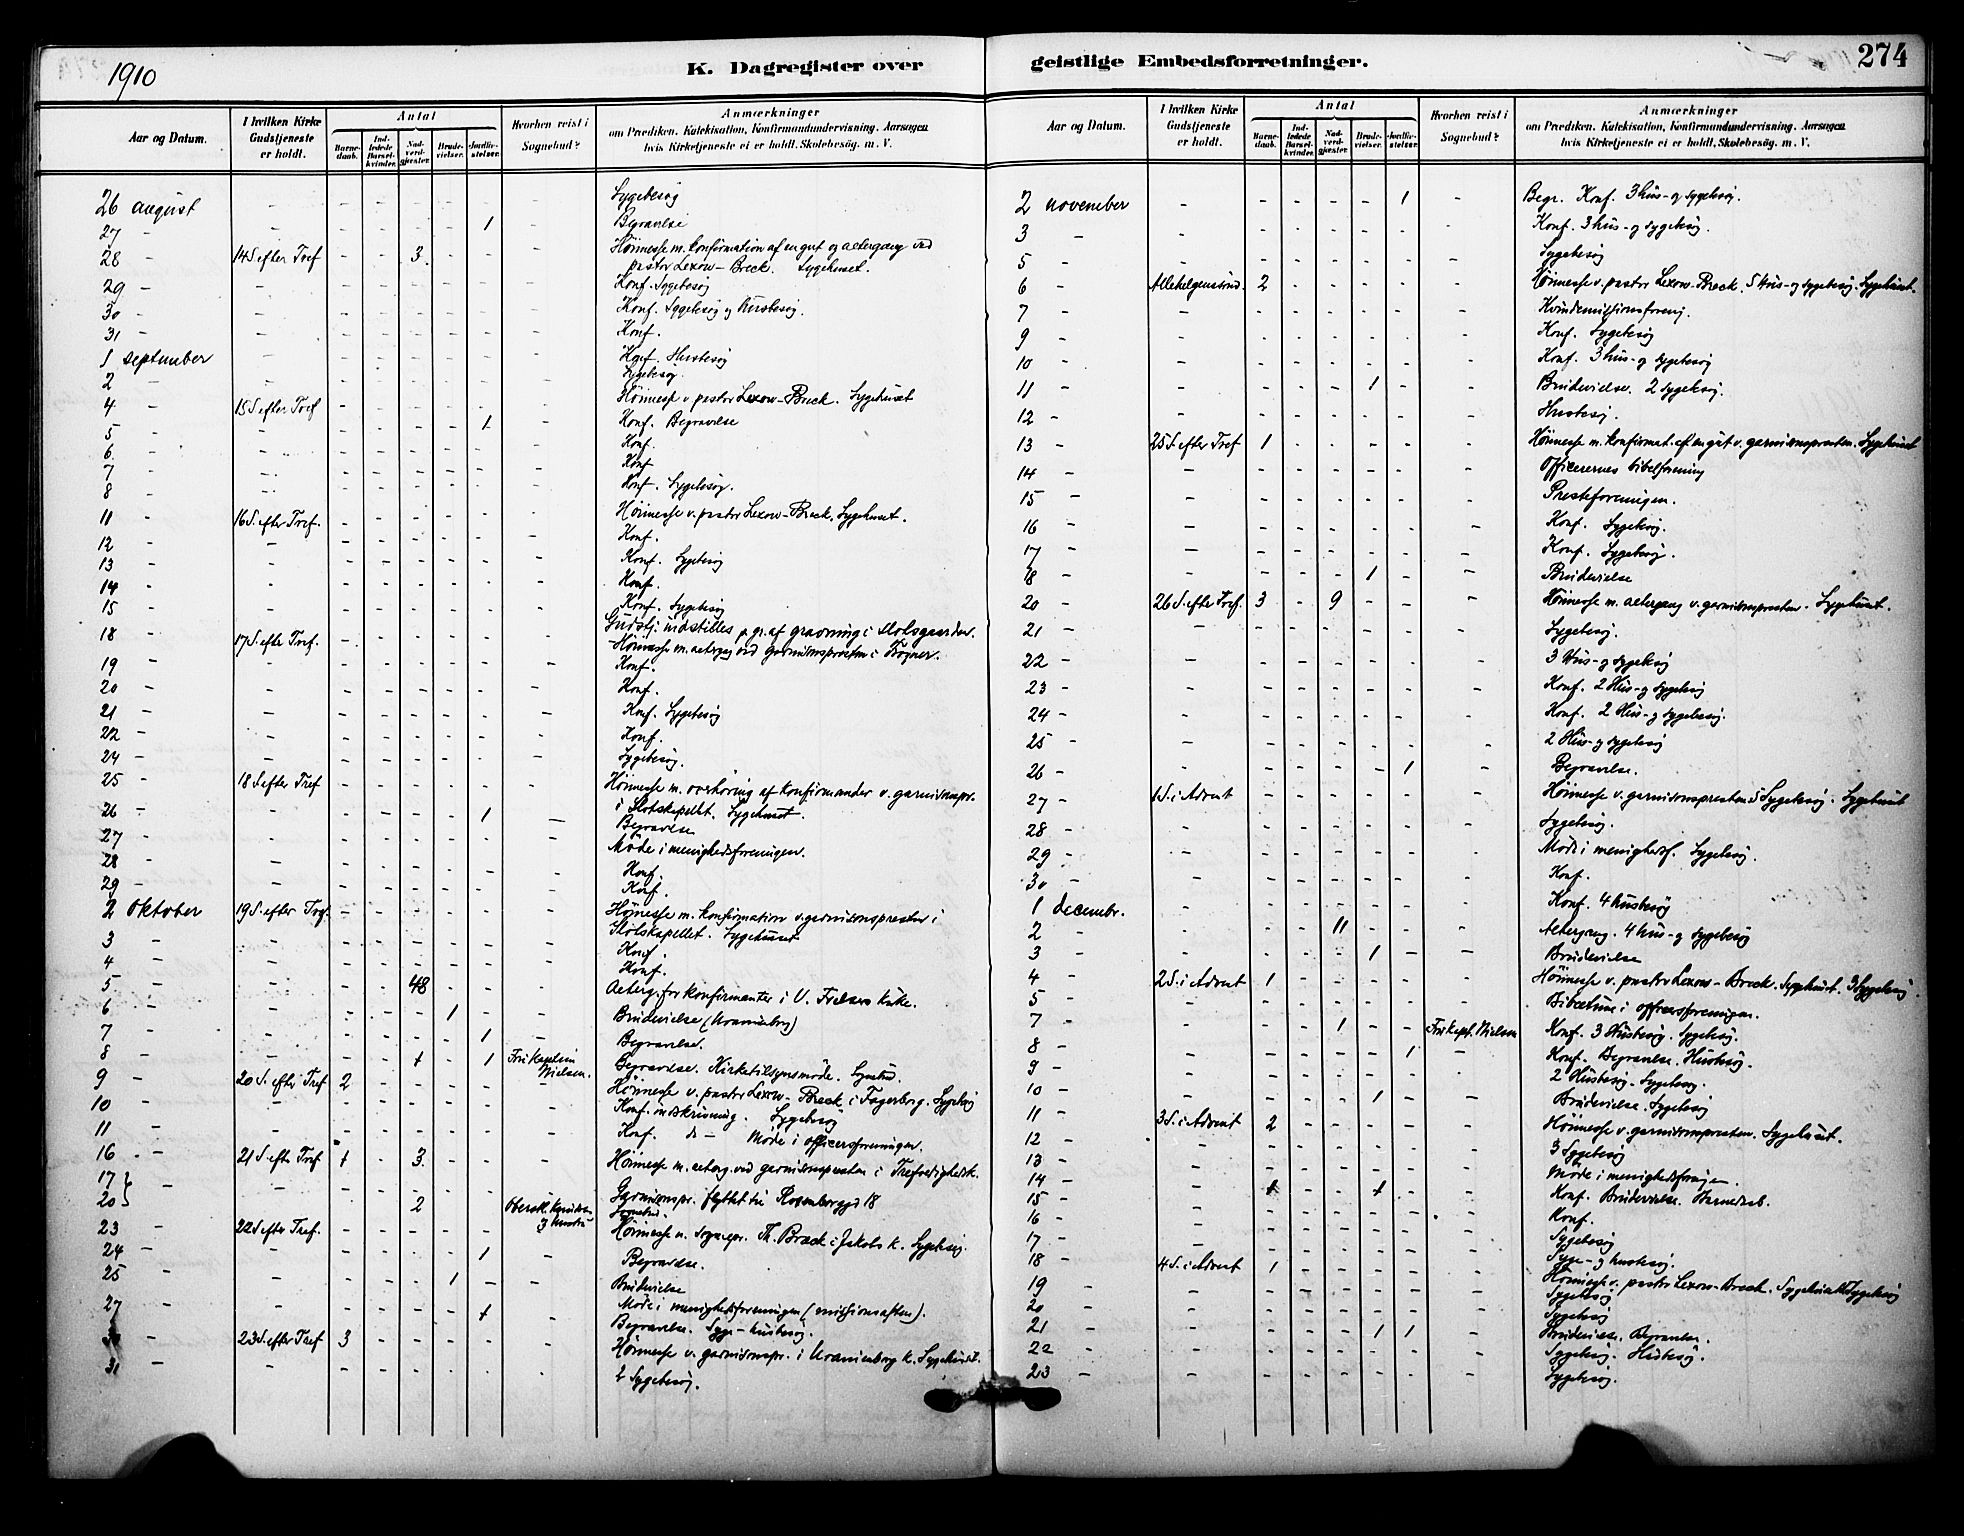 1910
K. Dagregister over
geistlige Embedsforretninger.
274
Aar og Datum. | I hvilken Kirke Gudstjeneste er holdt. | Antal | Barnedaab. | Indledede Barselkvinder. | Nadverdgjæster. | Brudevielser. | Jordfæstelser. | Hvorhen reist i Sognebud? | Anmærkninger om Prædiken, Katekisation, Konfirmandundervisning, Aarsagen hvis Kirketjeneste ei er holdt, Skolebesøg, m. V.
26 august - - - - - - - Sygebesøg
27 - - - - - - 1 - Begravelse
28 - 14 S. efter Tref - - 3 - - - Höimesse m. konfirmation af en gut og altergang ved
pastor Lexow-Breck. Sygehuset.
29 - - - - - - - - Konf. Sygebesøg
30 - - - - - - - - Konf. Sygebesøg og husbesøg.
31 - - - - - - - - Konf.
1 september - - - - - - - Konf. Husbesøg
2 - - - - - - - - Sygebesøg.
4 - 15 S. efter Tref - - - - - - Höimesse v. pastor Lexow-Breck. Sygehuset
5 - - - - - - 1 - Konf. Begravelse
6 - - - - - - - - Konf.
7 - - - - - - - - Konf
8 - - - - - - - - Konf. Sygebesøg.
11 - 16 S. efter Tref. - - - - - - Höimesse v. pastor Lexow-Breck. Sygehuset.
12 - - - - - - - - Konf.
13 - - - - - - - - Konf. Sygebesøg
14 - - - - - - - - Konf.
15 - - - - - - - - Konf. Sygebesøg
18 - 17 S. efter Tref. - - - - - - Gudstj. indstilles p. gr. af gravning i Slotsgaarden.
Höimesse m. altergang ved garnisonspresten i Frogner.
19 - - - - - - - - Konf.
20 - - - - - - - - Konf.
21 - - - - - - - - Konf. Sygebesøg
22 - - - - - - - - Konf.
24 - - - - - - - - Sygebesøg.
25 - 18 S. efter Tref - - - - - - Höimesse m. overhöring af konfirmander v. garnisonspr.
i Slotskapellet. Sygehuset.
26 - - - - - - 1 - Begravelse
27 - - - - - - - - Möde i menighedsforeningen.
28 - - - - - - - - Konf.
29 - - - - - - - - Konf.
2 Oktober 19 S. efter Tref. - - - - - - Höimesse m. konfirmation v. garnisonspresten i
Slotskapellet. Sygehuset
3 - - - - - - - - Konf.
4 - - - - - - - - Konf.
5 - - - - 48 - - - Alterg. for konfirmanter i V. Frelsers kirke.
6 - - - - - 1 - - Brudevielse (Uranienborg)
7 - - - - - - 1 - Begravelse.
8 - - - - 1 - 1 Fru kaptein Nielsen. Begravelse. Kirketilsynsmöde. Sognebud.
9 - 20 S. efter Tref 2 - - - - - Höimesse v. pastor Lexow-Breck i Fagerborg. Sygebesøg
10 - - - - - - - - Konf. indskrivning. Sygebesøg
11 - - - - - - - - Konf. do - Möde i officersforeningen.
16 - 21 S. efter Tref. 1 - 3 - - - Höimesse m. alterg. ved garnisonspresten i Trefoldighedsk.
17 } - - - - - - - Garnisonspr. flyttet til Rosenborggd 18
20 } - - - 2 - - Oberstl. Knudsen og hustru Sognebud.
23 22 S. efter Tref. - - - - - - Höimesse v. sognepr. Th. Breck i Jakobs k. Sygebesøg.
24 - - - - - - 1 - Begravelse.
25 - - - - - 1 - - Brudevielse
- Möde i menighedsforeningen (missionsaften).
27 - - - - - - 1 - Begravelse. Syge- husbesøg.
30 - 23 S. efter Tref 3 - - - - - Höimesse v. garnisonspr. i Uranienborg k. Sygehuset.
31 - - - - - - - - 2 Sygebesøg.
Aar og Datum. | I hvilken Kirke Gudstjeneste er holdt. | Antal | Barnedaab. | Indledede Barselkvinder. | Nadverdgjæster. | Brudevielser. | Jordfæstelser. | Hvorhen reist i Sognebud? | Anmærkninger om Prædiken, Katekisation, Konfirmandundervisning, Aarsagen hvis Kirketjeneste ei er holdt, Skolebesøg, m. V.
2 november - - - - - 1 - Begr. Konf. 3 hus- og sygebesøg.
3 - - - - - - - - Konf. 3 hus- og sygebesøg.
5 - - - - - - - - Sygebesøg
6 Allehelgenssønd. 2 - - - - - Höimesse v. pastor Lexow-Breck. 5 Hus- og sygebesøg. Sygehuset.
7 - - - - - - - - Kvindemissionsforenig.
9 - - - - - - - - Konf. Sygebesøg
10 - - - - - - - - Konf. 3 hus- og sygebesøg
11 - - - - - 1 - - Brudevielse. 2 sygebesøg.
12 - - - - - - - - Husbesøg.
13 - 25 S. efter Tref 1 - - - - - Höimesse m. konfirmat. af en gut v. garnisonspresten. Sygehuset
14 - - - - - - - - Officerernes bibelforening
15 - - - - - - - - Presteforeningen.
16 - - - - - - - - Konf. Sygebesøg.
17 - - - - - - - - Konf. Sygebesøg.
18 - - - - - 1 - - Brudevielse
20 - 26 S. efter Tref. 3 - 9 - - - Höimesse m. altergang v. garnisonspresten. Sygehuset.
21 - - - - - - - - Sygebesøg.
22 - - - - - - - - 3 Hus- og sygebesøg
23 - - - - - - - - Konf. 2 Hus- og sygebesøg
24 - - - - - - - - Konf. 2 Hus- og sygebesøg.
25 - - - - - - - - 2 Hus- og sygebesøg
26 - - - - - - 1 - Begravelse.
27 - 1 S. i Advent - - - - - - Höimesse v. garnisonspresten. 5 Sygebesøg. Sygehuset
28 - - - - - - - - Sygebesøg.
29 - - - - - - - - Möde i menighedsf. Sygebesøg.
30 - - - - - - - - Konf.
1 decembr. - - - - - - - Konf. 4 husbesøg
2 - - - - 11 - - - Altergang. 4 hus- og sygebesøg
3 - - - - - 1 - - Brudevielse
4 - 2 S. i Advent 1 - - - - - Höimesse v. pastor Lexow-Breck. Sygehuset. 3 Sygebesøg.
5 - - - - - - - - Bibeltime i officersforeningen.
7 - - - - 1 - - Fru kapt. Nielsen Konf. 3 Husbesøg. Sygebesøg.
8 - - - - - - 1 - Konf. Begravelse. Husbesøg.
9 - - - - - - - - 2 Husbesøg. Sygebesøg.
10 - - - - - 1 - - Brudevielse. Sygebesøg
11 - 3 S. i Advent 2 - - - - - Höimesse v. garnisonspresten. Sygehuset.
12 - - - - - - - - 3 Sygebesøg
13 - - - - - - - - Möde i menighedsforenigen.
14 - - 1 - - 1 - - Konf. Brudevielse. Barnedaab.
15 - - - - - - - - Konf.
16 - - - - - - - - Sygebesøg
17 - - - - - - - - Syge- og husbesøg.
18 - 4 S. i Advent 1 - - - - - Höimesse v. pastor Lexow-Breck. Sygehuset. Sygebesøg
19 - - - - - - - - Sygebesøg.
20 - - - - - - - - Sygebesøg
21 - - - - - 1 1 - Brudevielse. Begravelse.
22 - - - - - - - - Sygebesøg. Husbesøg.
23 - - - - - - - - Sygebesøg.